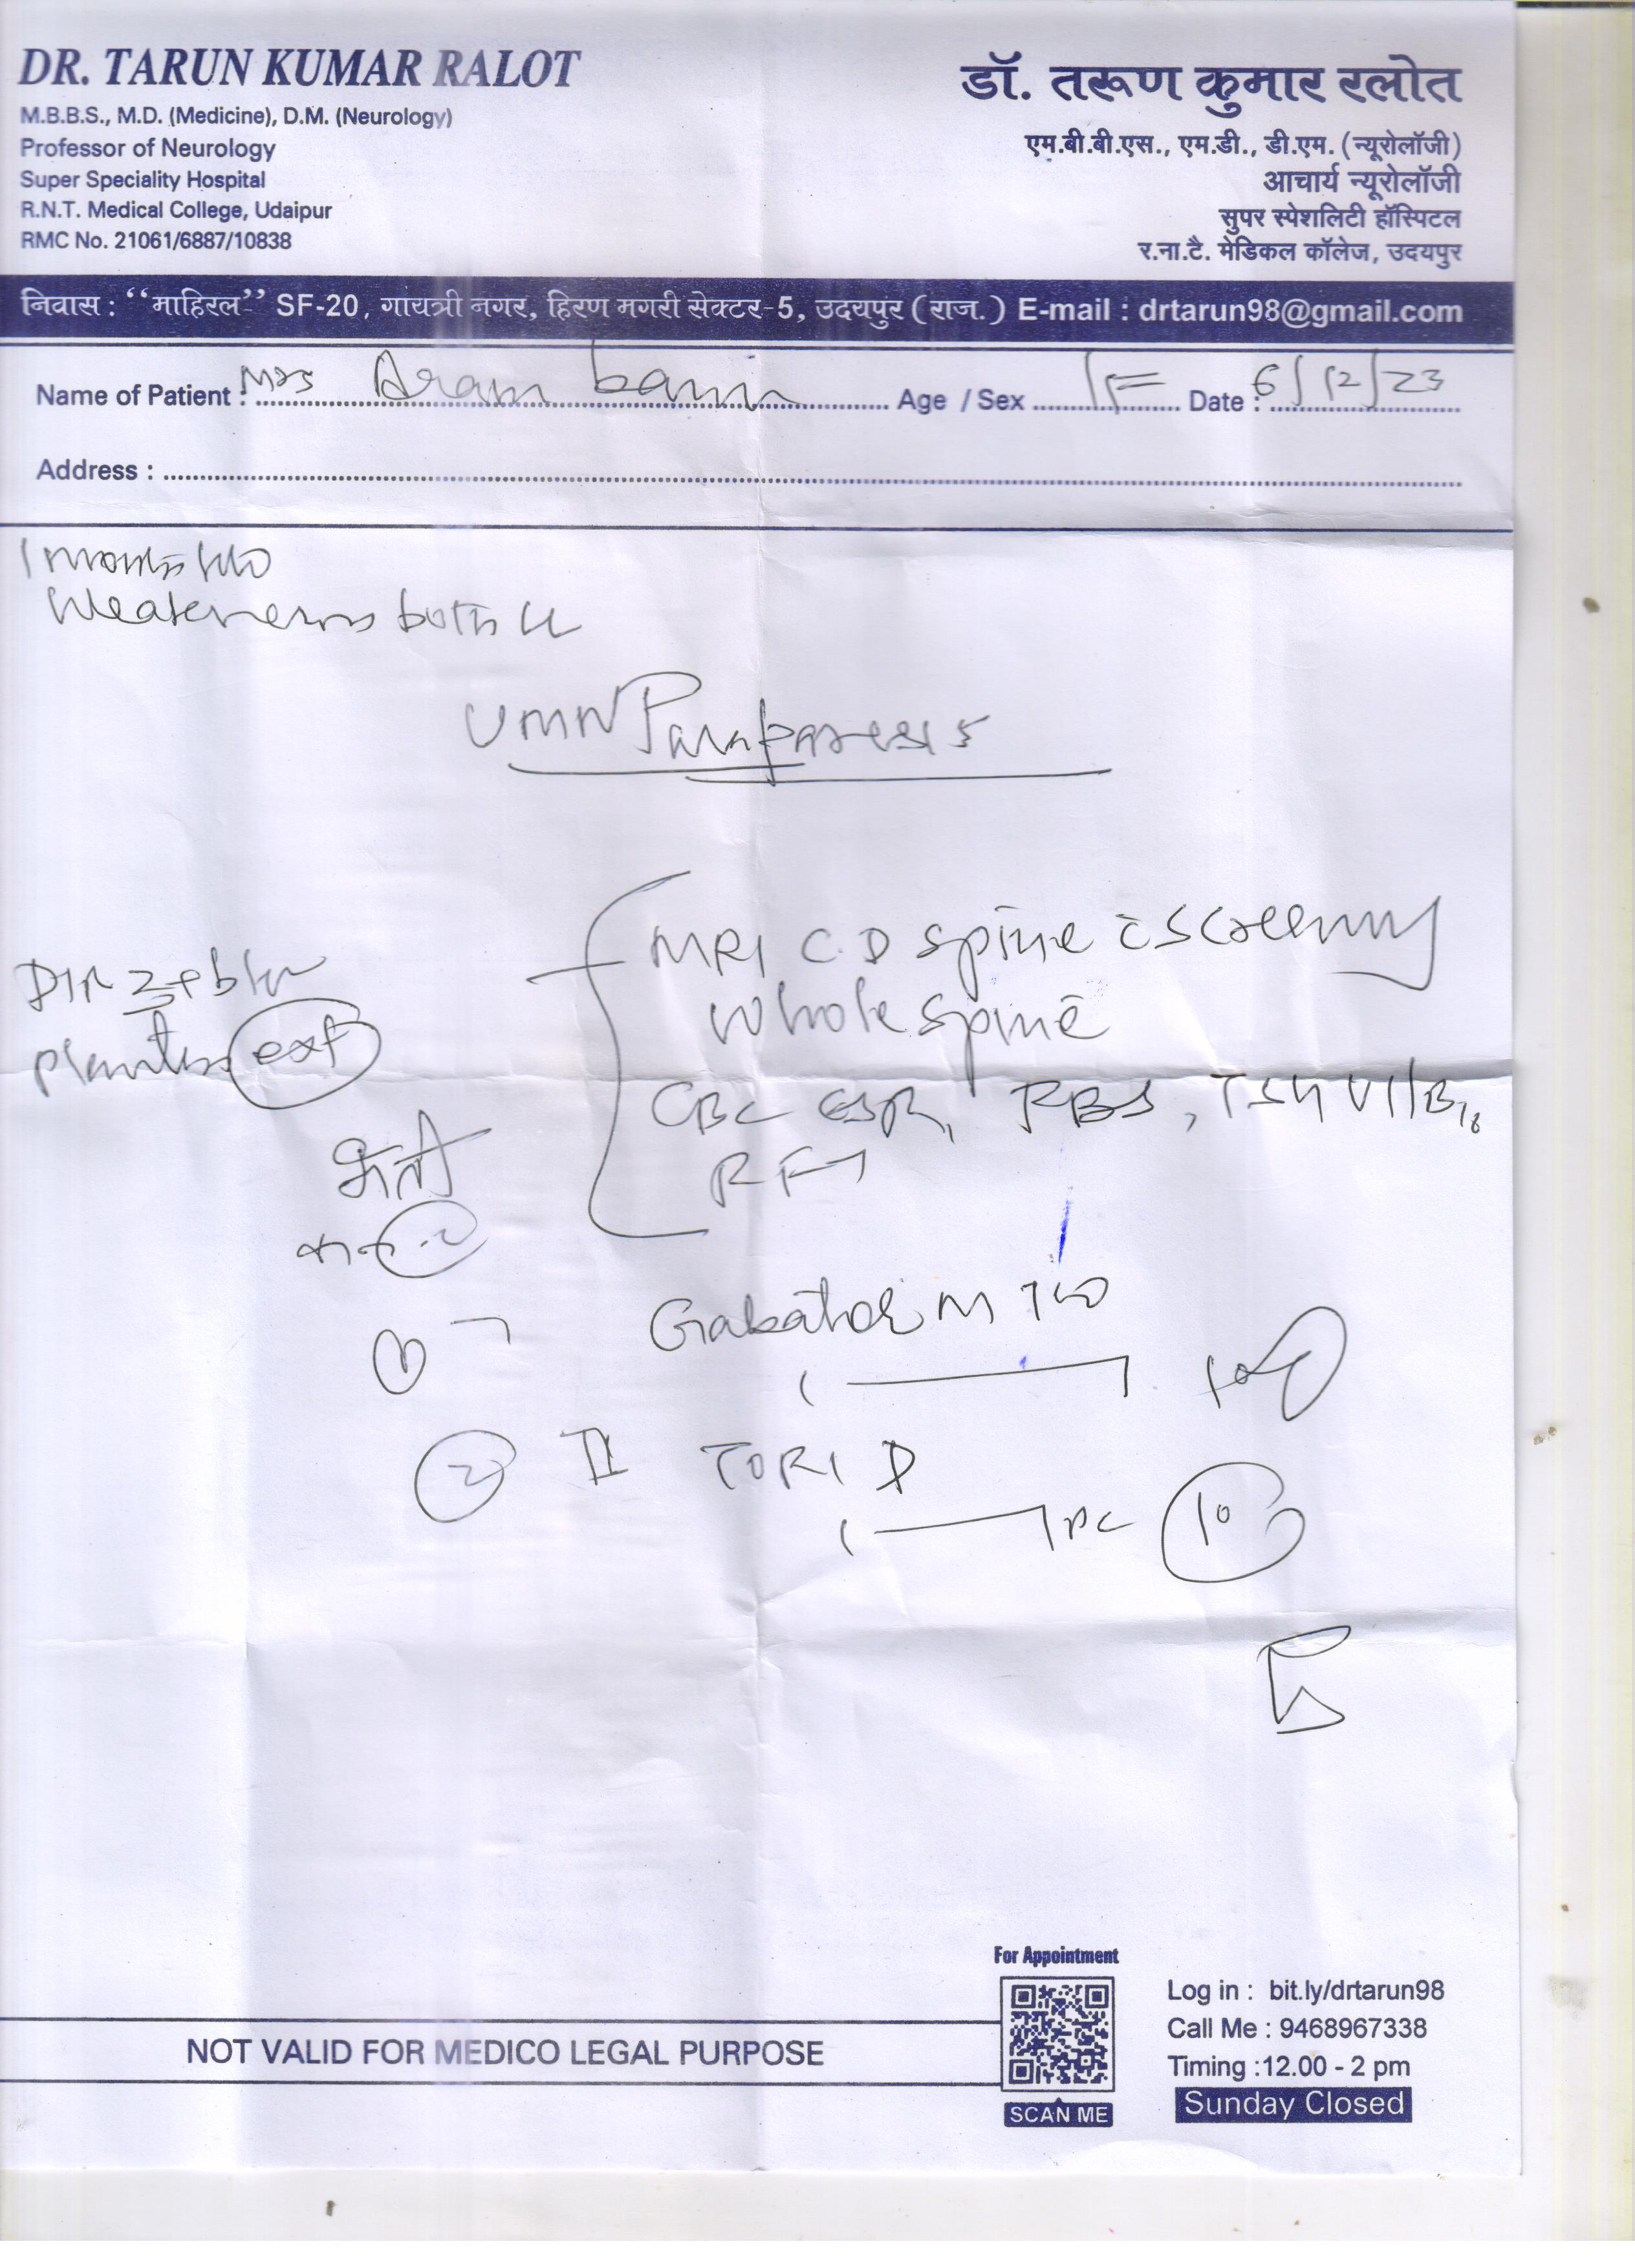 DR. TARUN KUMAR RALOT
M.B.B.S., M.D. (Medicine), D.M. (Neurology)
Professor of Neurology
Super Speciality Hospital
R.N.T. Medical College, Udaipur
RMC No. 21061/6887/10838
डॉ. तरूण कुमार रलोत
एम.बी.बी.एस., एम.डी., डी.एम. (न्यूरोलॉजी)
आचार्य न्यूरोलॉजी
सुपर स्पेशलिटी हॉस्पिटल
र.ना.टै. मेडिकल कॉलेज, उदयपुर
निवास : “माहिरल” SF-20, गायत्री नगर, हिरण मगरी सेक्टर-5, उदयपुर (राज.) E-mail : drtarun98@gmail.com
Name of Patient : Mrs Aram Age / Sex F Date : 6/12/23
Address :
1 month
Weakness both LL
UMN Paraparesis
MRI C.D spine c screening
whole spine
DTR
plantar ext
CBC ESR, RBS, TSH Vit B12
RFT
भर्ती
Gabator M
①
② TORI D
1 — 1 PC 10
For Appointment
SCAN ME
Log in : bit.ly/drtarun98
Call Me : 9468967338
Timing :12.00 - 2 pm
Sunday Closed
NOT VALID FOR MEDICO LEGAL PURPOSE